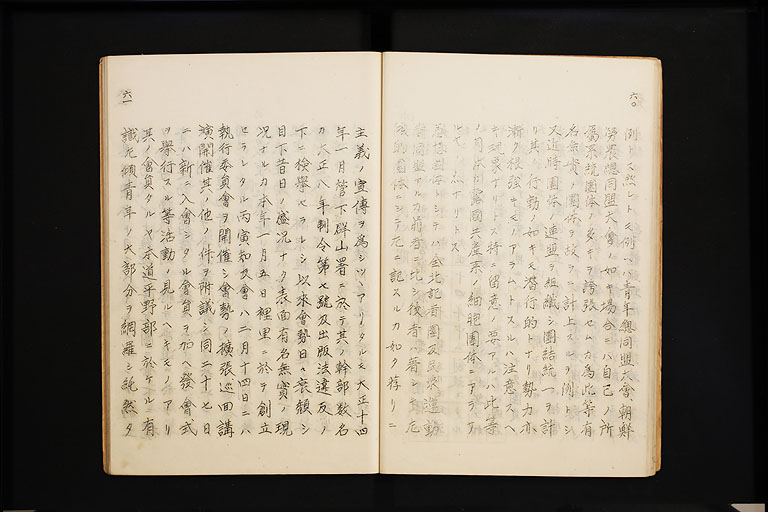 六〇
例ヘハ青年總同盟大會、朝鮮
勞農總同盟大會ノ如キ場合ニハ自己ノ所
屬系統團体ノ多キヲ誇張セムカ為此等有
名無實ノ團体ヲ故ラニ計上スルヲ例トシ
又近時團体ノ連盟ヲ組織シ團結統一ヲ計
リ其ノ行動ノ如キモ潜行的トナリ勢力亦
漸ク根強キモノアラムトスルハ注意スヘ
キ現象ナリトス特ニ留意ヲ要アルハ此等
ノ團体カ露國共產黨ノ細胞團体ニアラサ
ルヤノ点ナリトス
思想團体トシテハ全北記者團及民衆運動
者同盟アルカ前者ニ比シ後者ハ著シキ尼
的團体ニシテ左ニ記スルカ如ク存リニ
六一
主義ノ宣傳ヲ為シツヽアリタルモ大正十四
年一月管下群山署ニ於テ其ノ幹部数名
カ大正八年制令第七號及出版法違反ノ
下ニ檢擧セラレシ以來會勢日々衰頽シ
目下昔日ノ盛况ナク表面有名無實ノ現
况ナルカ本年一月五日裡里ニ於テ創立
セラレタル丙寅知友會ハ二月十四日ニハ
執行委員會ヲ開催シ會勢ノ擴張巡回講
演開催其ノ他ノ件ヲ附議シ同二十七日
ニハ新ニ入會シタル會員ヲ加ヘ發會式
ヲ擧行スル等活動ノ見ルヘキモノアリ
其ノ會員タルヤ本道平野部ニ於ケル有
識左傾青年ノ大部分ヲ網羅シ純然タ